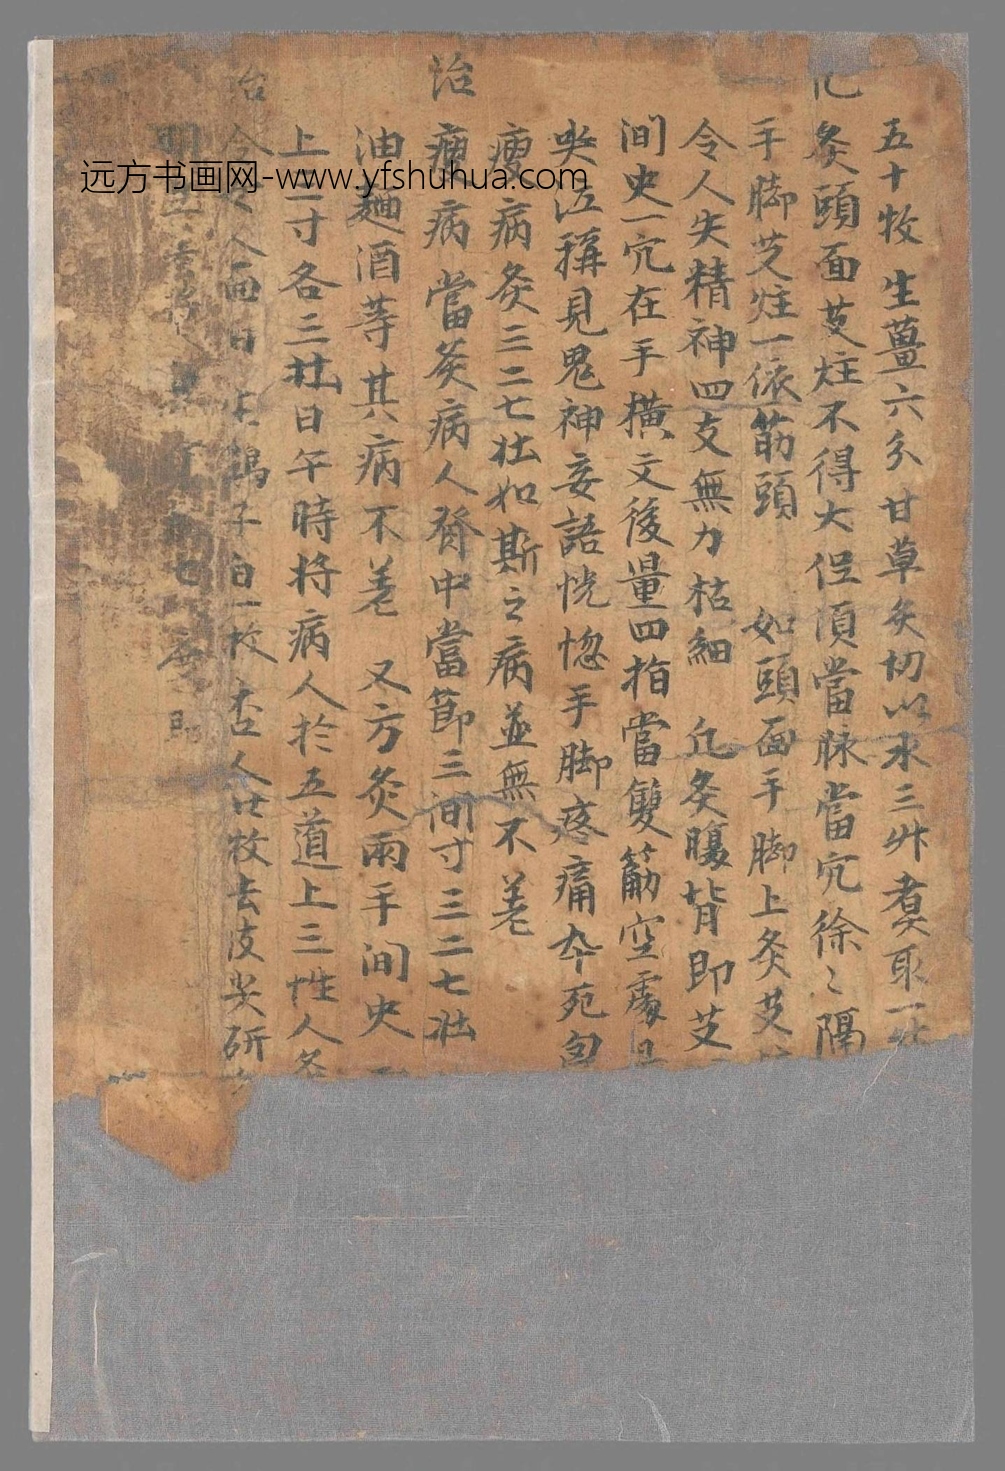 五十牧生薑六分甘草炙切以水三升煑取一
灸頭面艾炷不得大但須當脉當穴徐〻隔
手脚芝炷一依筋頭 如頭面手脚上灸艾
令人失精神四支無力枯細 凡灸腹背即艾
间史一穴在手橫文後量四指當雙筋空處
稱見鬼神妄語恍惚手脚疼痛
瘦病灸三二七壮如斯之病並無不差
治 病當灸病人臍中當節三间寸三二七壮
油麺酒等其病不差 又方灸兩手间史
上一寸各三壮日午時将病人於五道上三性人
治 令人面白 子白一枚杏人廿枚去皮尖研
明 七 即
远方书画网-www.yfshuhua.com